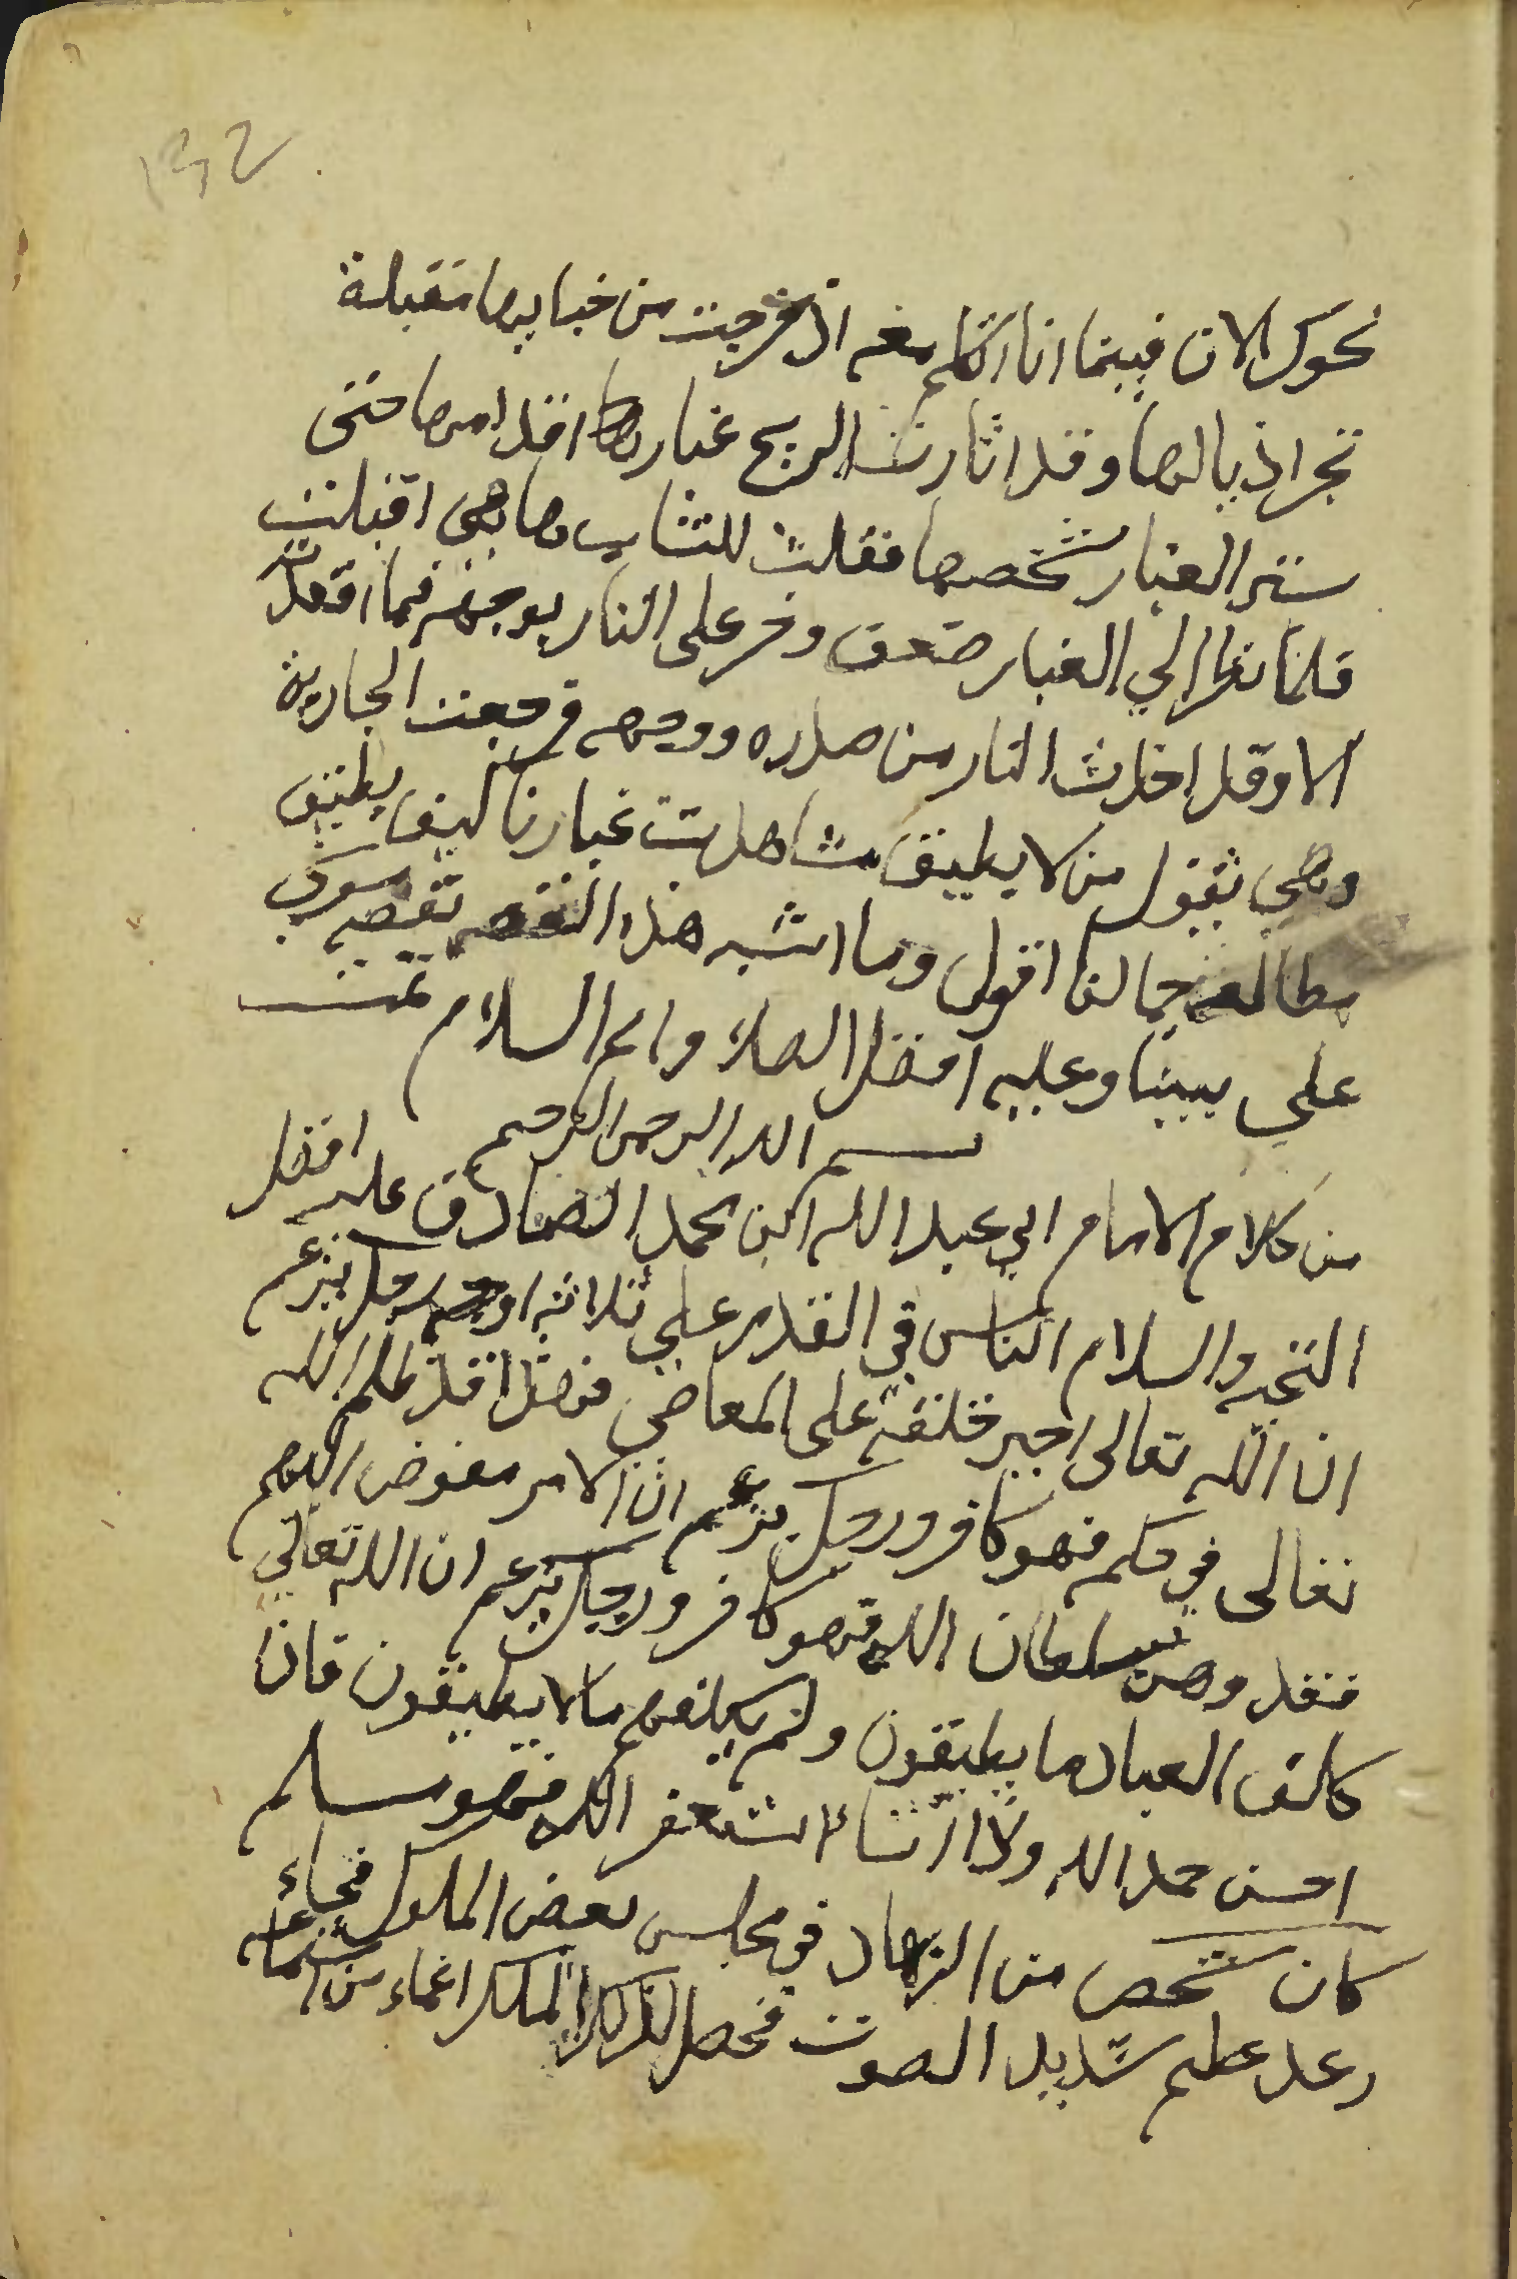 132
نحوك الان فبينما انا اتكلم معه اذ خرجت من خبايها مقبلة
تجر اذيالها وقد اثارت الريح غبار اقدامها حتى
ستر الغبار شخصها فقلت للشاب ها هي اقبلت
فلما نظر الي الغبار صعق وخر على النار بوجهه فما اقعدته
الا وقد اخذت النار من صدره ووجهه فرجعت الجارية
وهي تقول من لا يطيق مشاهدت غبارنا كيف يطيق
مطالعه جمالنا اقول وما اشبه هذه القصه بقصه موسى
على نبينا وعليه افضل الصلاة واتم السلام تمت
بسم الله الرحمن الرحيم
من كلام الامام ابي عبد الله ابن محمد الصادق عليه افضل
التحيه والسلام الناس في القدر علي ثلاثه اوجه رجل يزعم
ان الله تعالى اجبر خلقه على المعاصي فهذا قد ظلم الله
تعالى في حكمه فهو كافر ورجل يزعم ان الامر مفوض اليهم
فقد وهن سلطان الله فهو كافر ورجل يزعم ان الله تعالي
كلف العباد ما يطيقون ولم يكلفهم ما لا يطيقون فاذا
احسن حمد الله واذا اساء استغفر الله فهو مسلم
كان شخص من الزهاد في مجلس بعض الملوك فجاء
رعد عظيم شديد الصوت فحصل لذلك الملك اغماء من استماعه